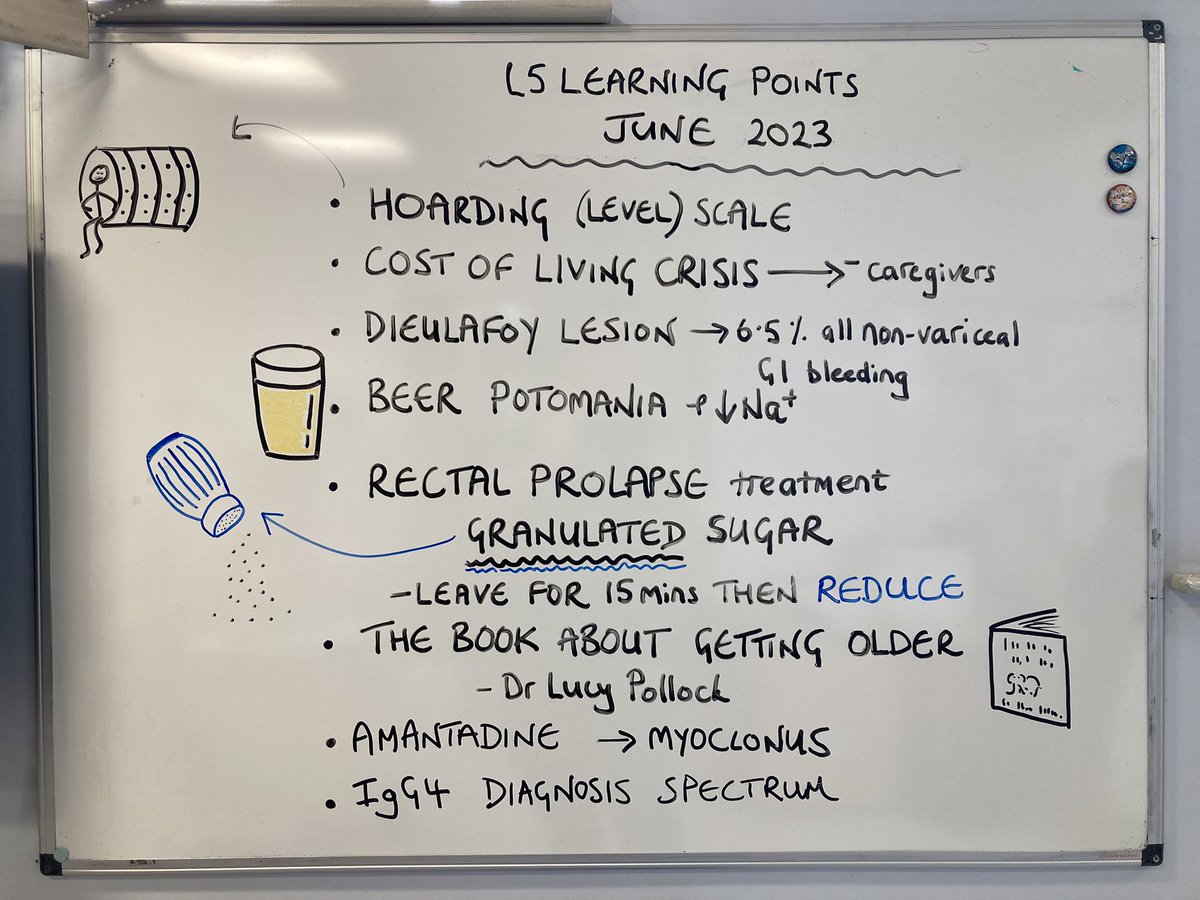 L5 LEARNING POINTS
JUNE 2023
• HOARDING (LEVEL) SCALE
• COST OF LIVING CRISIS → - caregivers
• DIEULAFOY LESION → 6.5% all non-variceal
GI bleeding
• BEER POTOMANIA + ↓Na⁺
• RECTAL PROLAPSE treatment
GRANULATED SUGAR
- LEAVE FOR 15 mins THEN REDUCE
• THE BOOK ABOUT GETTING OLDER
- Dr Lucy Pollock
• AMANTADINE → MYOCLONUS
• IgG4 DIAGNOSIS SPECTRUM